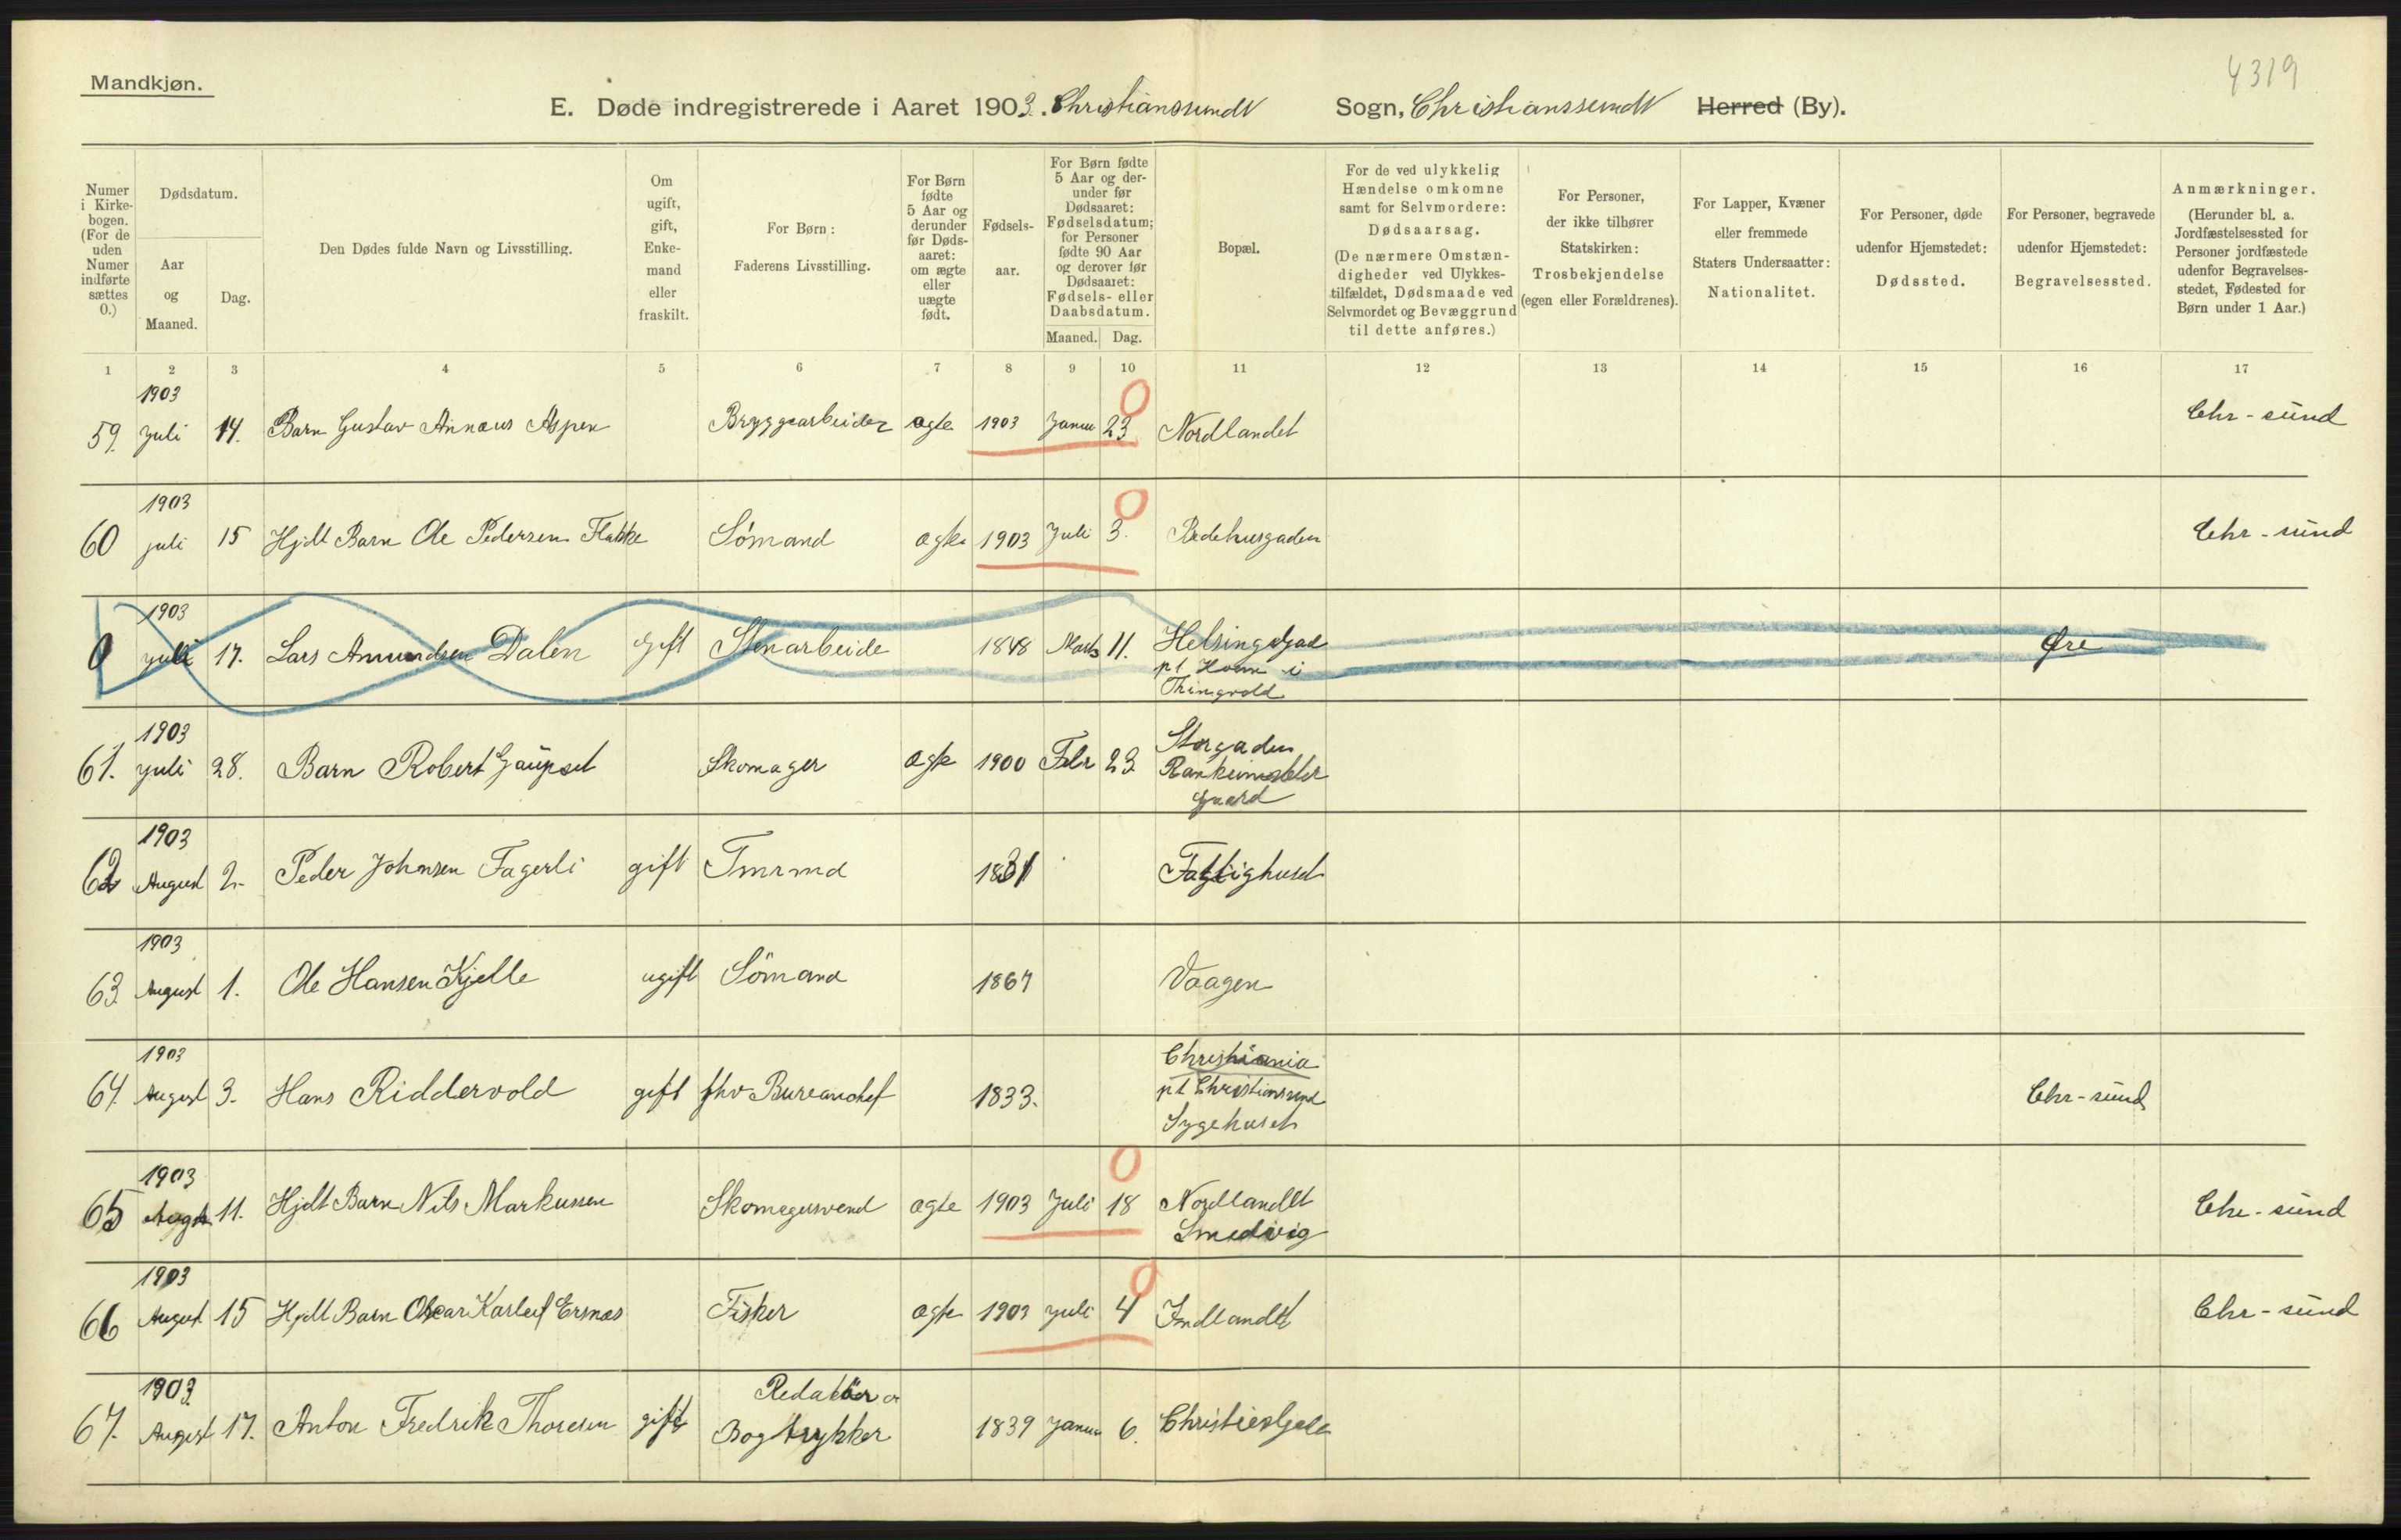 4319
Mandkjøn.
E. Døde indregistrerede i Aaret 1903. Christianssundt Sogn, Christianssundt Herred (By).
Numer i Kirkebogen. (For de uden Numer indførte sættes 0.)
Dødsdatum.
Aar og Maaned.
Dag.
Den Dødes fulde Navn og Livsstilling.
Om ugift, gift, Enkemand eller fraskilt.
For Børn: Faderens Livsstilling.
For Børn fødte 5 Aar og derunder før Dødsaaret: om ægte eller uægte født.
Fødselsaar.
For Børn fødte 5 Aar og derunder før Dødsaaret: Fødselsdatum; for Personer fødte 90 Aar og derover før Dødsaaret: Fødsels- eller Daabsdatum.
Maaned. Dag.
Bopæl.
For de ved ulykkelig Hændelse omkomne samt for Selvmordere: Dødsaarsag. (De nærmere Omstændigheder ved Ulykkestilfældet, Dødsmaade ved Selvmordet og Bevæggrund til dette anføres.)
For Personer, der ikke tilhører Statskirken: Trosbekjendelse (egen eller Forældrenes).
For Lapper, Kvæner eller fremmede Staters Undersaatter: Nationalitet.
For Personer, døde udenfor Hjemstedet: Dødssted.
For Personer, begravede udenfor Hjemstedet: Begravelsessted.
Anmærkninger. (Herunder bl. a. Jordfæstelsessted for Personer jordfæstede udenfor Begravelsesstedet, Fødested for Børn under 1 Aar.)
1 2 3 4 5 6 7 8 9 10 11 12 13 14 15 16 17
1903
59. juli 14. Barn Gustav Annæus Aspen Bryggearbeider ægte 1903 Januu 23 0 Nordlandet Chr-sund
1903
60 juli 15 Hjdt Barn Ole Pedersen Flakke Sömand ægte 1903 Juli 3. 0 Bedehusgaden Chr-sund
1903
0 juli 17. Lars Amundsen Dalen gift Stenarbeide 1848 Marts 11. Helsingsgad Øre
pt. Hoem i
Thingvold
1903
61. juli 28. Barn Robert Gaupset Skomager ægte 1900 Febr 23 Storgaden
Rankeimsæter
Gaard
1903
62 August 2. Peder Johansen Fagerli gift Tmrmd 1831 Fattighuset
1903
63 August 1. Ole Hansen Kjelle ugift Sömand 1867 Vaagen
1903
64. August 3. Hans Riddervold gift fhv Bureauchef 1833. Christiania Chr-sund
pt Christianssund
Sygehuset
1903
65 Augst 11. Hjdt Barn Nils Markussen Skomagersvend ægte 1903 Juli 18 0 Nordlandet Chr-sund
Smedvig
1903
66 August 15 Hjdt Barn Oscar Karleif Ersnæs Fisker ægte 1903 juli 4 0 Indlandet Chr-sund
1903.
67. August 17. Anton Fredrik Thoresen gift Redaktör og
Bogtrykker 1839 Januu 6. Christiesgade